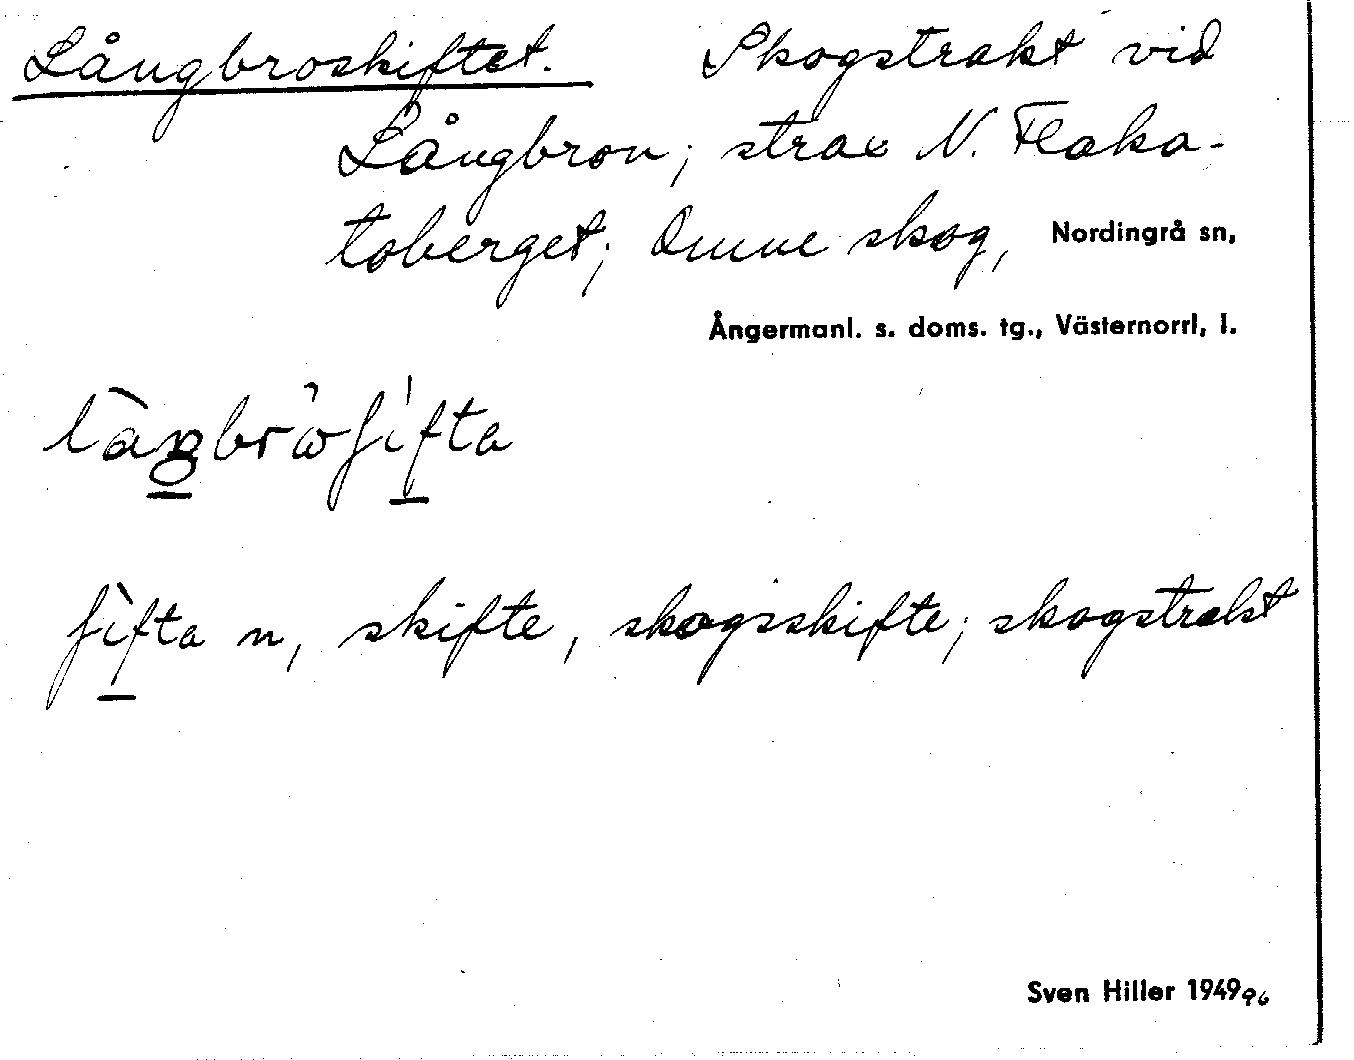 Långbroskiftet. Skogstrakt vid
Långbron; strax N. Flaka-
toberget; Omne skog, Nordingrå sn,
Ångermanl. s. doms. tg., Västernorrl, l.
skifte, skogsskifte; skogstrakt
Sven Hiller 1949